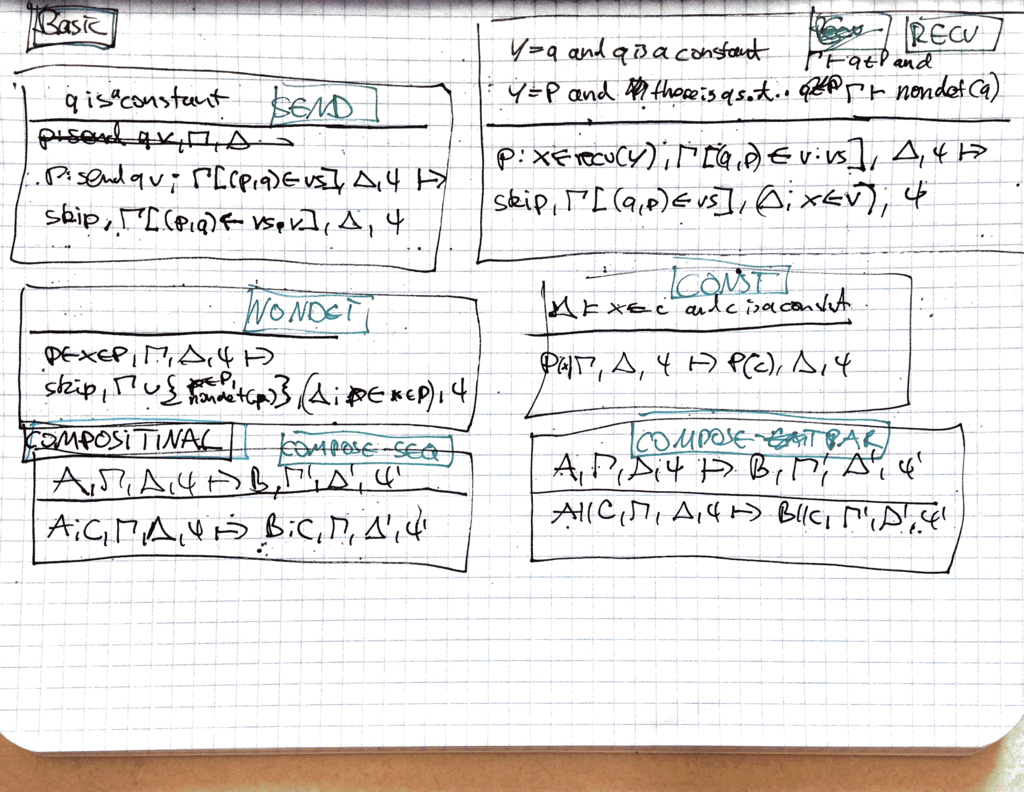 Basic
q is a constant SEND
p: send q v, Γ, Δ
p: send q v; Γ[(p,q) ∈ vs], Δ, Ψ ↦
skip, Γ[(p,q) ← vs.v], Δ, Ψ
RECV
Y=q and q is a constant
Γ ⊢ q ∈ P and
Y=P and there is q s.t. Γ ⊢ nondet(q)
p: x ∈ recv(Y); Γ[(q,p) ∈ v·vs], Δ, Ψ ↦
skip, Γ[(q,p) ∈ vs], (Δ; x ∈ v), Ψ
NONDET
p ∈ x ∈ P, Γ, Δ, Ψ ↦
skip, Γ ∪ { nondet(p)}, (Δ; p ∈ x ∈ P), Ψ
CONST
Δ ⊢ x ∈ c and c is a constnt
P(x) Γ, Δ, Ψ ↦ P(c), Δ, Ψ
COMPOSITINAL COMPOSE-SEQ
A, Γ, Δ, Ψ ↦ B, Γ', Δ', Ψ'
A;C, Γ, Δ, Ψ ↦ B;C, Γ, Δ', Ψ'
COMPOSE-PAR
A, Γ, Δ, Ψ ↦ B, Γ', Δ', Ψ'
A||C, Γ, Δ, Ψ ↦ B||C, Γ', Δ', Ψ'